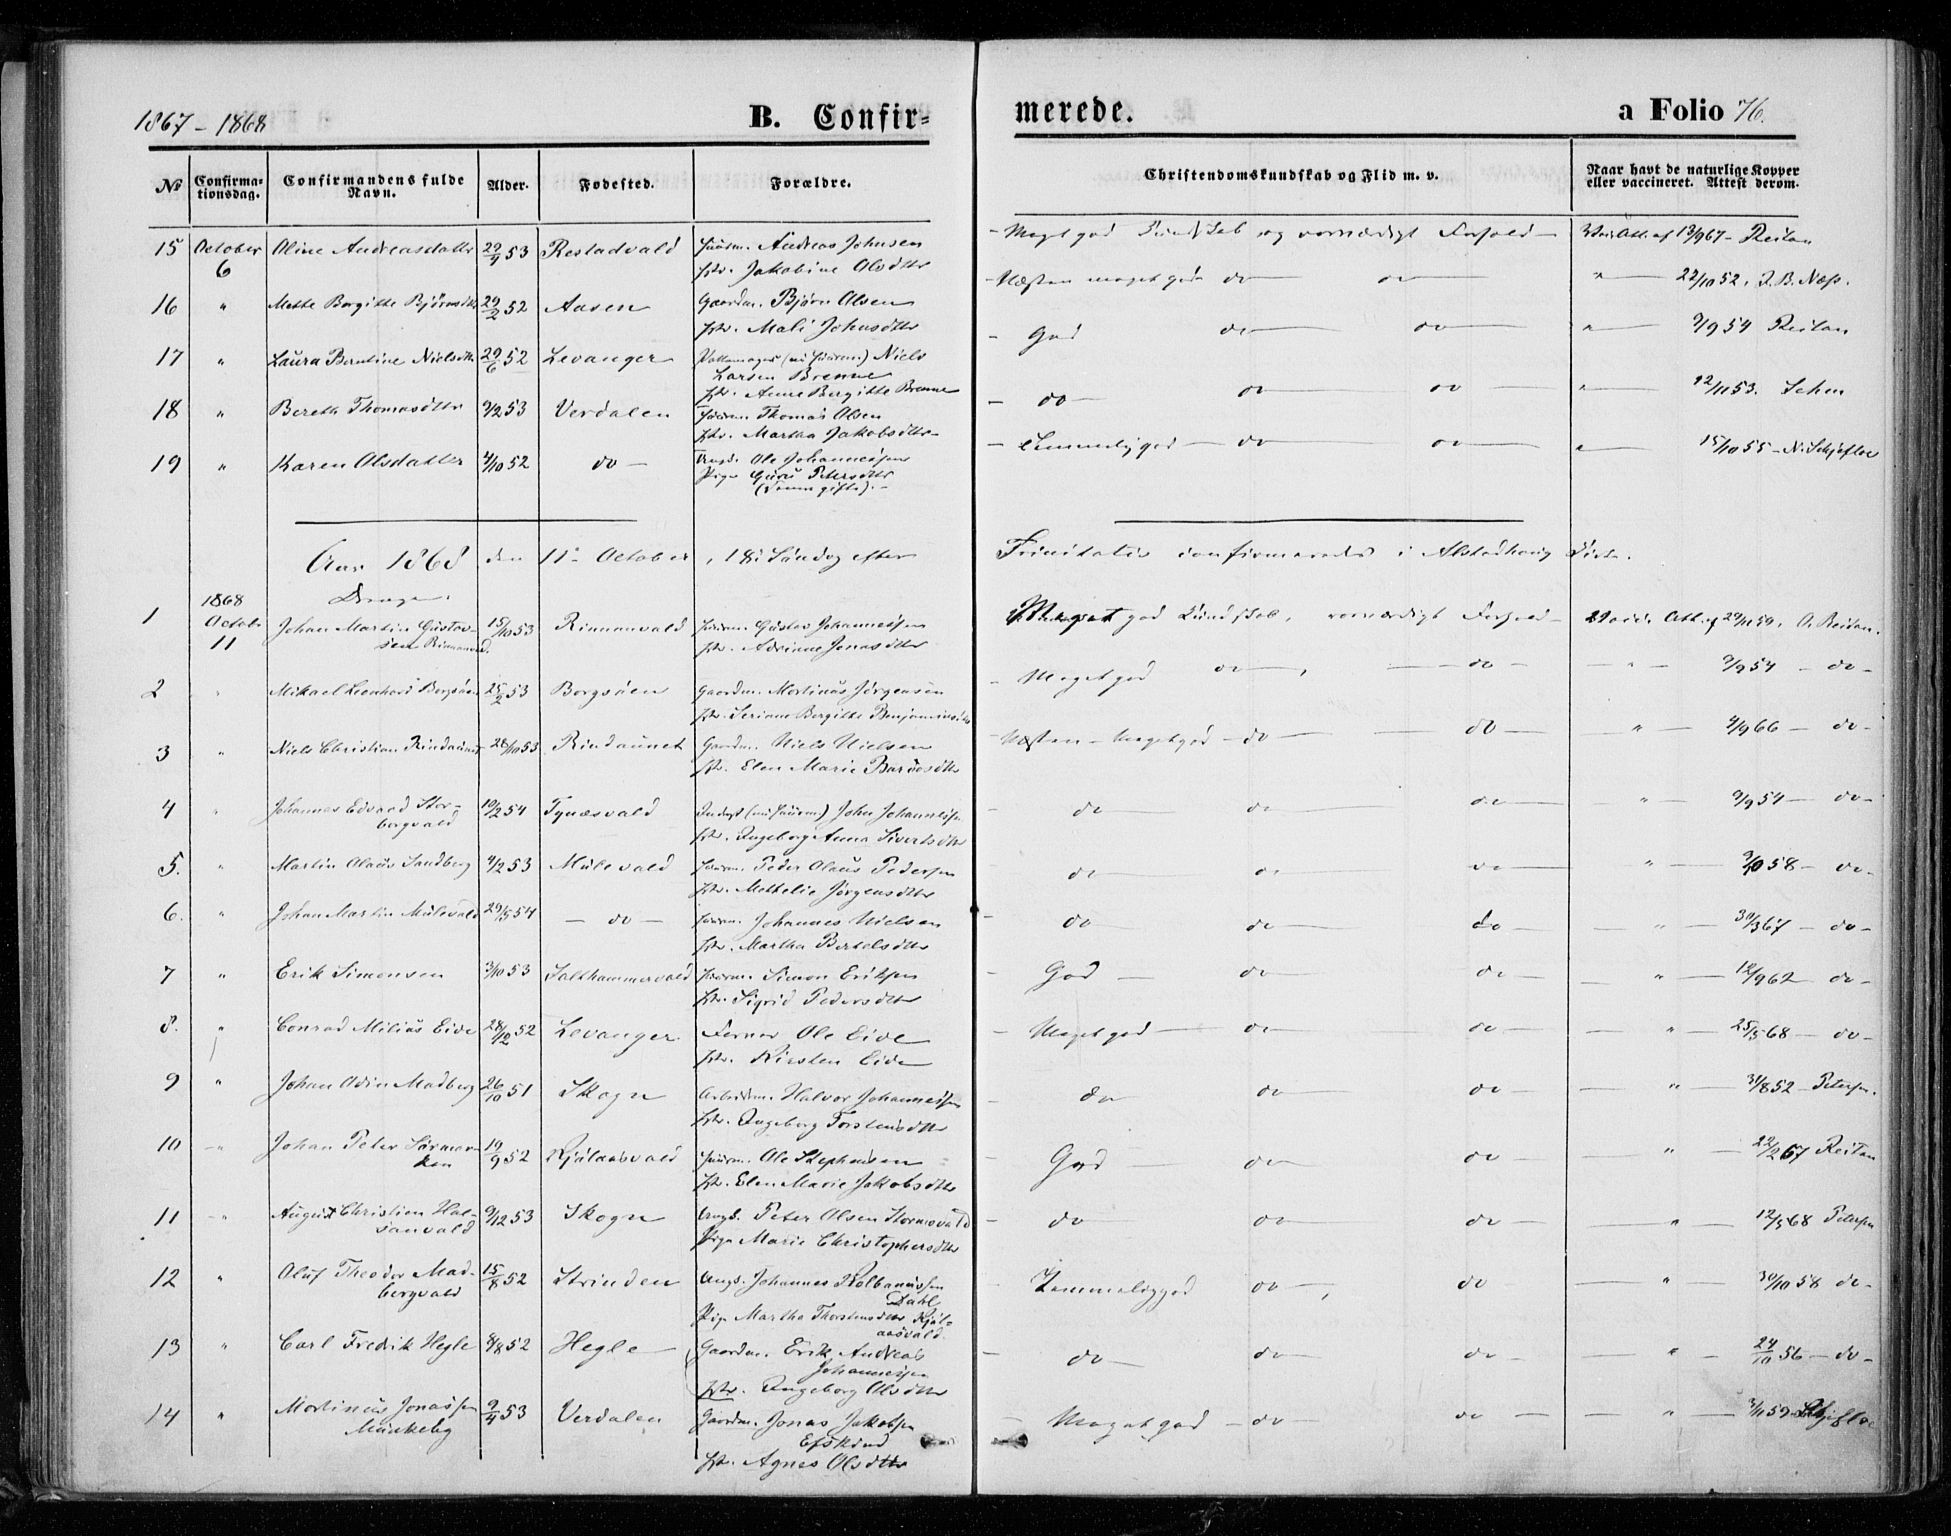 1867 - 1868
B. Confir=
merede.
a Folio 76.
No
Confirma-
tionsdag.
Confirmandens fulde
Navn.
Alder.
Fødested.
Forældre.
Christendomskundskab og Flid m. v.
Naar havt de naturlige Kopper
eller vaccineret. Attest derom.
15 October 6 Oline Andreasdatter 29/4 53 Restadvald Huusm. Andreas Johnsen
Hst. Jakobine Olsdttr
Meget god Kundskab og værdigt Forhold 13/9 67 - Reitan
16 " Mette Bergitte Bjørnsdttr 29/2 52 Aasen Gaardm. Bjørn Olsen
Hst. Mali Johnsdttr
Næsten meget god do do " 22/10 52. J. B. Næss.
17 " Laura Berntine Nielsdttr 29/6 52 Levanger Niels
Larsen Brenne
Hst. Anne Bergitte Brenne
God do do " 9/9 54 Reitan
18 " Bereth Thomasdttr 9/2 53 Verdalen Huusm. Thomas Olsen
Hst. Martha Jakobsdttr
do do do " 12/11 53.
19 " Karen Olsdatter 4/10 52 do Ungk. Ole Johannessen
Pige Guru Petersdttr
Temmelig god do do " 15/10 55 - N. Schjefloe
Aar 1868 den 11te October, 18. Søndag efter Trinitatis confirmerede i Alstadhoug Kirke.
Drenge.
1 1868 Octobr 11 Johan Martin Gustav-
sen Rinnanvald 15/10 53 Rinnanvald Huusm. Gustav Johannessen
Hst. Adriane Jonasdttr
Meget god Kundskab, værdigt Forhold Att. af 29/11 59. O. Reitan.
2 " Mikael Leonhard Borgsøen 25/2 53 Borgsøen Gaardm. Mortinus Jørgensen
Hst. Seriane Bergitte Benjaminsdttr
Meget god do do " 9/9 54 do
3 " Niels Christian Rindaunet 28/10 53 Rindaunet Gaardm. Niels Nielsen
Hst. Elen Marie Bardosdttr
Næsten Meget god do do " 4/9 66 do
4 " Johannes Edvard Stor-
borgvald 10/2 54 Tynæsvald John Johannessen
Hst. Ingeborg Anna Sivertsdttr
do do do " 9/9 54 do
5. " Martin Olaus Sandberg 4/2 53 Mulevald Huusm. Peder Olaus Pedersen
Hst. Methelie Jørgensdttr
do do do " 58 do
6. " Johan Martin Mulevald 29/5 54 do Huusm. Johannes Nielsen
Hst. Martha Bertelsdttr
do do do " 30/3 67 do
7 " Erik Simonsen 3/10 53 Salthammervald Huusm. Simon Eriksen
Hst. Sigrid Pedersdttr
God do do " 12/9 62 do
8. " Conrad Milius Eide 28/12 52 Levanger Ole Eide
Hst. Kirsten Eide
Meget god do do " 25/5 68 do
9 " Johan Odin Madberg 26/10 51 Skogn Arbeidsm. Halvor Johannessen
Hst. Ingeborg Torstensdttr
do do do " 31/8 52 Petersen.
10 " Johan Peter Sørmar-
ken 19/9 52 Kjølaasvald Huusm. Ole Stephensen
Hst. Elen Marie Jakobsdttr
God do do " 22/2 67 Reitan
11 " August Christian Hal-
sanvald 9/12 53 Skogn Ungk. Peter Olsen Stormovald
Pige Marie Christophersdttr
do do do " 12/5 68 Petersen
12 " Oluf Theodor Mad-
bergvald 15/8 52 Strinden Ungk. Johannes Kolbanussen
Dahl
Pige Martha Thorstensdttr Kjøl-
aasvald.
Temmelig god do do " 30/10 58 do
13 " Carl Fredrik Hegle 8/8 52 Hegle Gaardm. Erik Andreas
Johannessen
Hst. Ingeborg Olsdttr
do do do " 24/10 56 do
14 " Mortinus Jonassen
Munkeby 9/4 53 Verdalen Gaardm. Jonas Jakobsen
Efskind
Hst. Agnes Olsdttr
Meget god do do " 3/11 59 Schjefloe